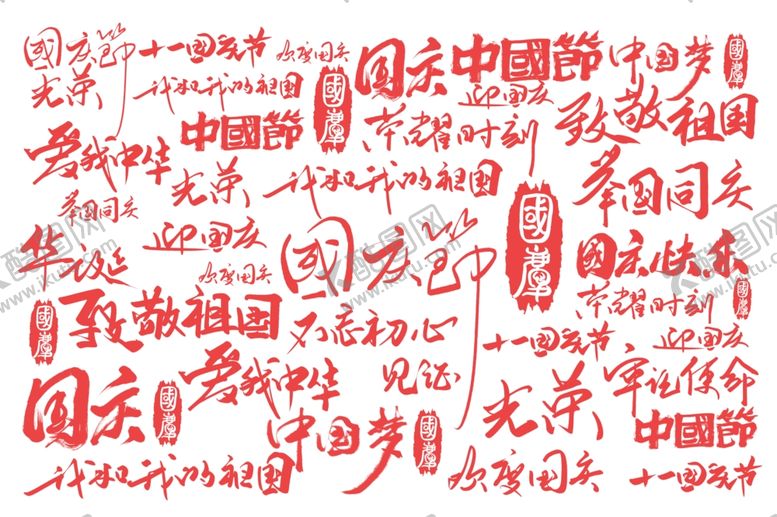 國慶節
十一国庆节
欢度国庆
国庆
中國節
中国梦
光荣
我和我的祖国
迎国庆
致敬祖国
荣耀时刻
中國節
爱我中华
光荣
我和我的祖国
举国同庆
举国同庆
國
迎国庆
國庆節
国庆快乐
华诞
欢度国庆
荣耀时刻
致敬祖国
不忘初心
十一国庆节
迎国庆
爱我中华
见证
光荣
牢记使命
国庆
中国梦
中國節
我和我的祖国
欢度国庆
十一国庆节